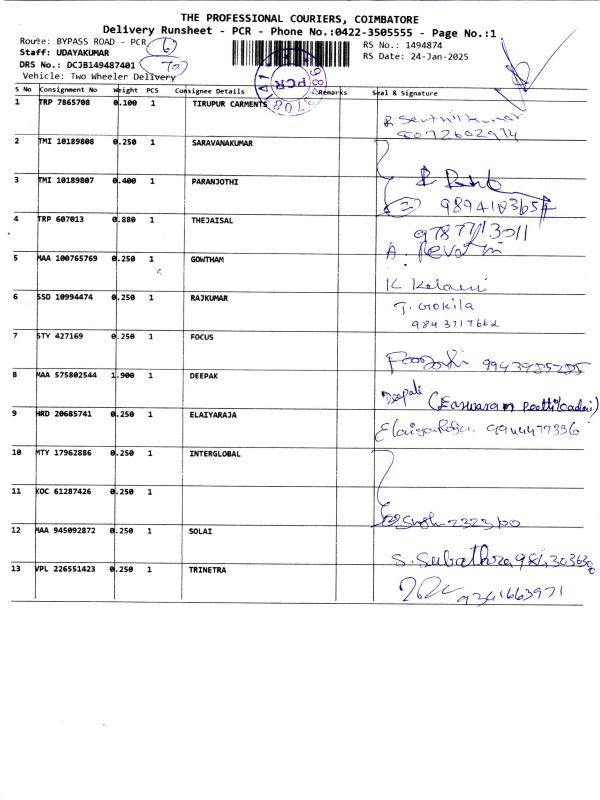 THE PROFESSIONAL COURIERS, COIMBATORE
Delivery Runsheet - PCR - Phone No.:0422-3505555 - Page No.:1
Route: BYPASS ROAD - PCR 6 RS No.: 1494874
Staff: UDAYAKUMAR RS Date: 24-Jan-2025
DRS No.: DCJB149487401 70
Vehicle: Two Wheeler Delivery
PCR
S No Consignment No Weight PCS Consignee Details Remarks Seal & Signature
1 TRP 7865708 0.100 1 TIRUPUR CARMENTS R Senthil kumar
8072602974
2 TMI 10189808 0.250 1 SARAVANAKUMAR
3 TMI 10189807 0.400 1 PARANJOTHI
2 9894183654
4 TRP 607013 0.880 1 THEJAISAL 9787713011
A. Revathi
5 MAA 100765769 0.250 1 GOWTHAM
K Kalaivani
6 SSD 10994474 0.250 1 RAJKUMAR T. Gokila
9843717662
7 STY 427169 0.250 1 FOCUS
9943985285
8 MAA 575802544 1.900 1 DEEPAK Deepak (Easwaram
9 HRD 20685741 0.250 1 ELAIYARAJA Elaiyaraja. 9944477336
10 MTY 17962886 0.250 1 INTERGLOBAL
11 KOC 61287426 0.250 1
232300
12 MAA 945092872 0.250 1 SOLAI S. Subathra 984303630
13 VPL 226551423 0.250 1 TRINETRA
9341663971